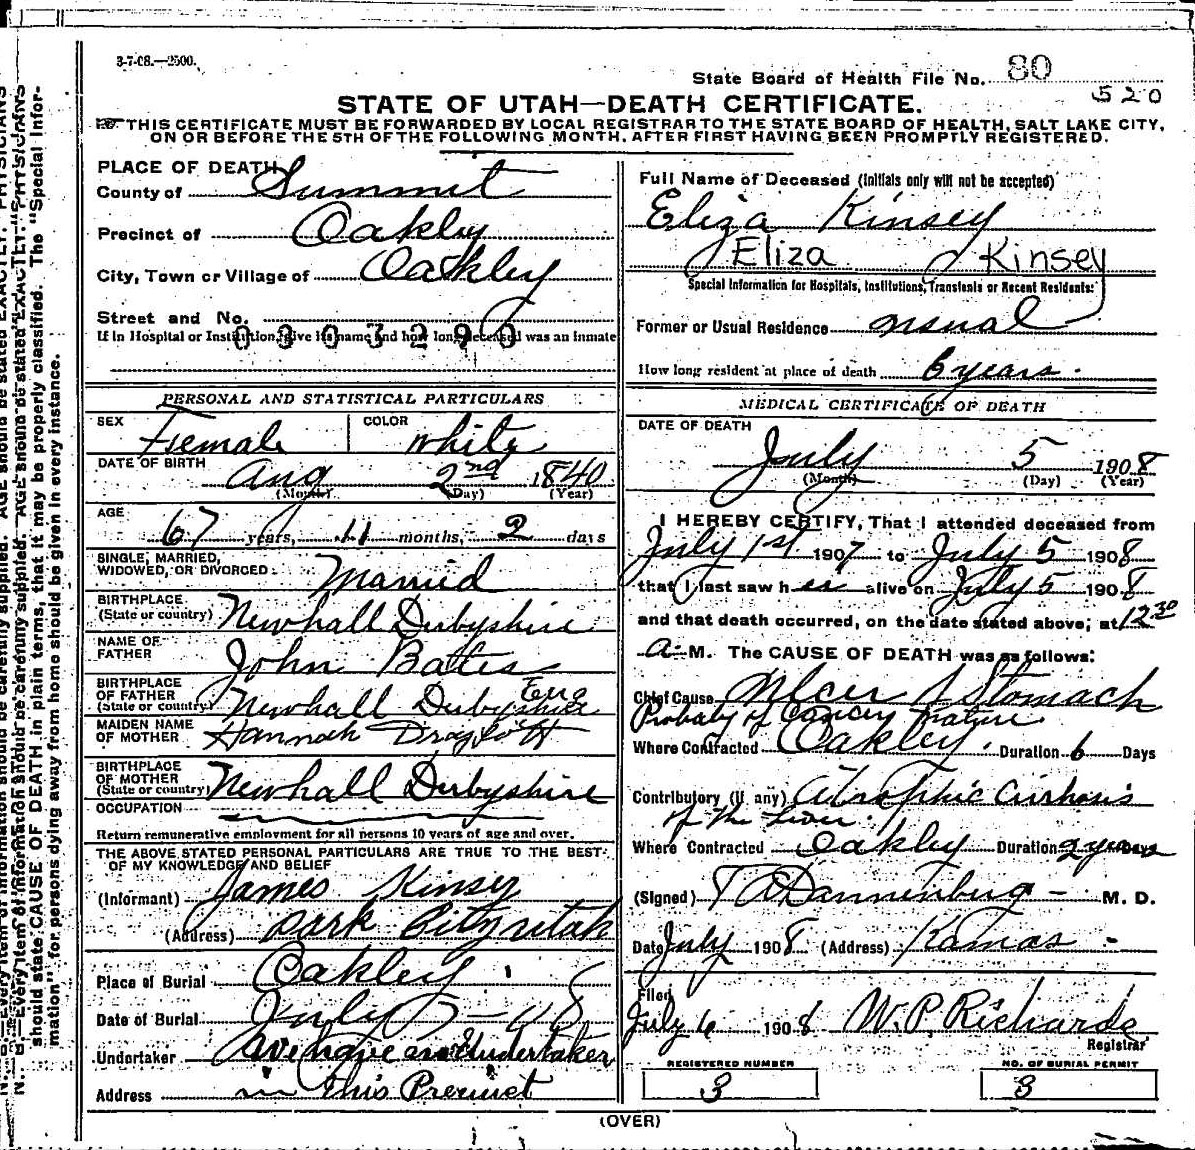 3-7-08.—2500.
State Board of Health File No. 80
520
STATE OF UTAH—DEATH CERTIFICATE.
THIS CERTIFICATE MUST BE FORWARDED BY LOCAL REGISTRAR TO THE STATE BOARD OF HEALTH, SALT LAKE CITY,
ON OR BEFORE THE 5TH OF THE FOLLOWING MONTH, AFTER FIRST HAVING BEEN PROMPTLY REGISTERED.
PLACE OF DEATH
County of Summit
Precinct of Oakley
City, Town or Village of Oakley
Street and No.
If in Hospital or Institution, give its name and how long deceased was an inmate
0303290
PERSONAL AND STATISTICAL PARTICULARS
SEX Female COLOR white
DATE OF BIRTH Aug 2nd 1840
(Month) (Day) (Year)
AGE 67 years, 11 months, 2 days
SINGLE, MARRIED,
WIDOWED, OR DIVORCED Married
BIRTHPLACE
(State or country) Newhall Durbyshire
NAME OF
FATHER John Bates
BIRTHPLACE
OF FATHER
(State or country) Newhall Durbyshire Eng
MAIDEN NAME
OF MOTHER Hannah
BIRTHPLACE
OF MOTHER
(State or country) Newhall Durbyshire
OCCUPATION
Return remunerative employment for all persons 10 years of age and over.
THE ABOVE STATED PERSONAL PARTICULARS ARE TRUE TO THE BEST
OF MY KNOWLEDGE AND BELIEF
(Informant) James Kinsey
(Address) Park City utah
Place of Burial Oakley
Date of Burial July
Undertaker We have no Undertaker
Address in this Precinct
Full Name of Deceased (Initials only will not be accepted)
Eliza Kinsey
Eliza Kinsey
Special Information for Hospitals, Institutions, Transients or Recent Residents:
Former or Usual Residence usual
How long resident at place of death 6 years.
MEDICAL CERTIFICATE OF DEATH
DATE OF DEATH
July 5 1908
(Month) (Day) (Year)
I HEREBY CERTIFY, That I attended deceased from
July 1st 1907 to July 5 1908
that I last saw her alive on July 5 1908
and that death occurred, on the date stated above, at 12 30
a. M. The CAUSE OF DEATH was as follows:
Chief Cause Ulcer of Stomach
Probaly of Cancer nature.
Where Contracted Oakley. Duration 6 Days
Contributory (if any) Atrophic Cirrhosis
of the Liver.
Where Contracted Oakley Duration 2 years
(Signed) Dannenberg M. D.
Date July 1908 (Address) Kamas
Filed
July 6 1908 W. P. Richards
Registrar
REGISTERED NUMBER
3
NO. OF BURIAL PERMIT
3
(OVER)
should state CAUSE OF DEATH in plain terms, that it may be properly classified. The "Special Infor-
mation" for persons dying away from home should be given in every instance.